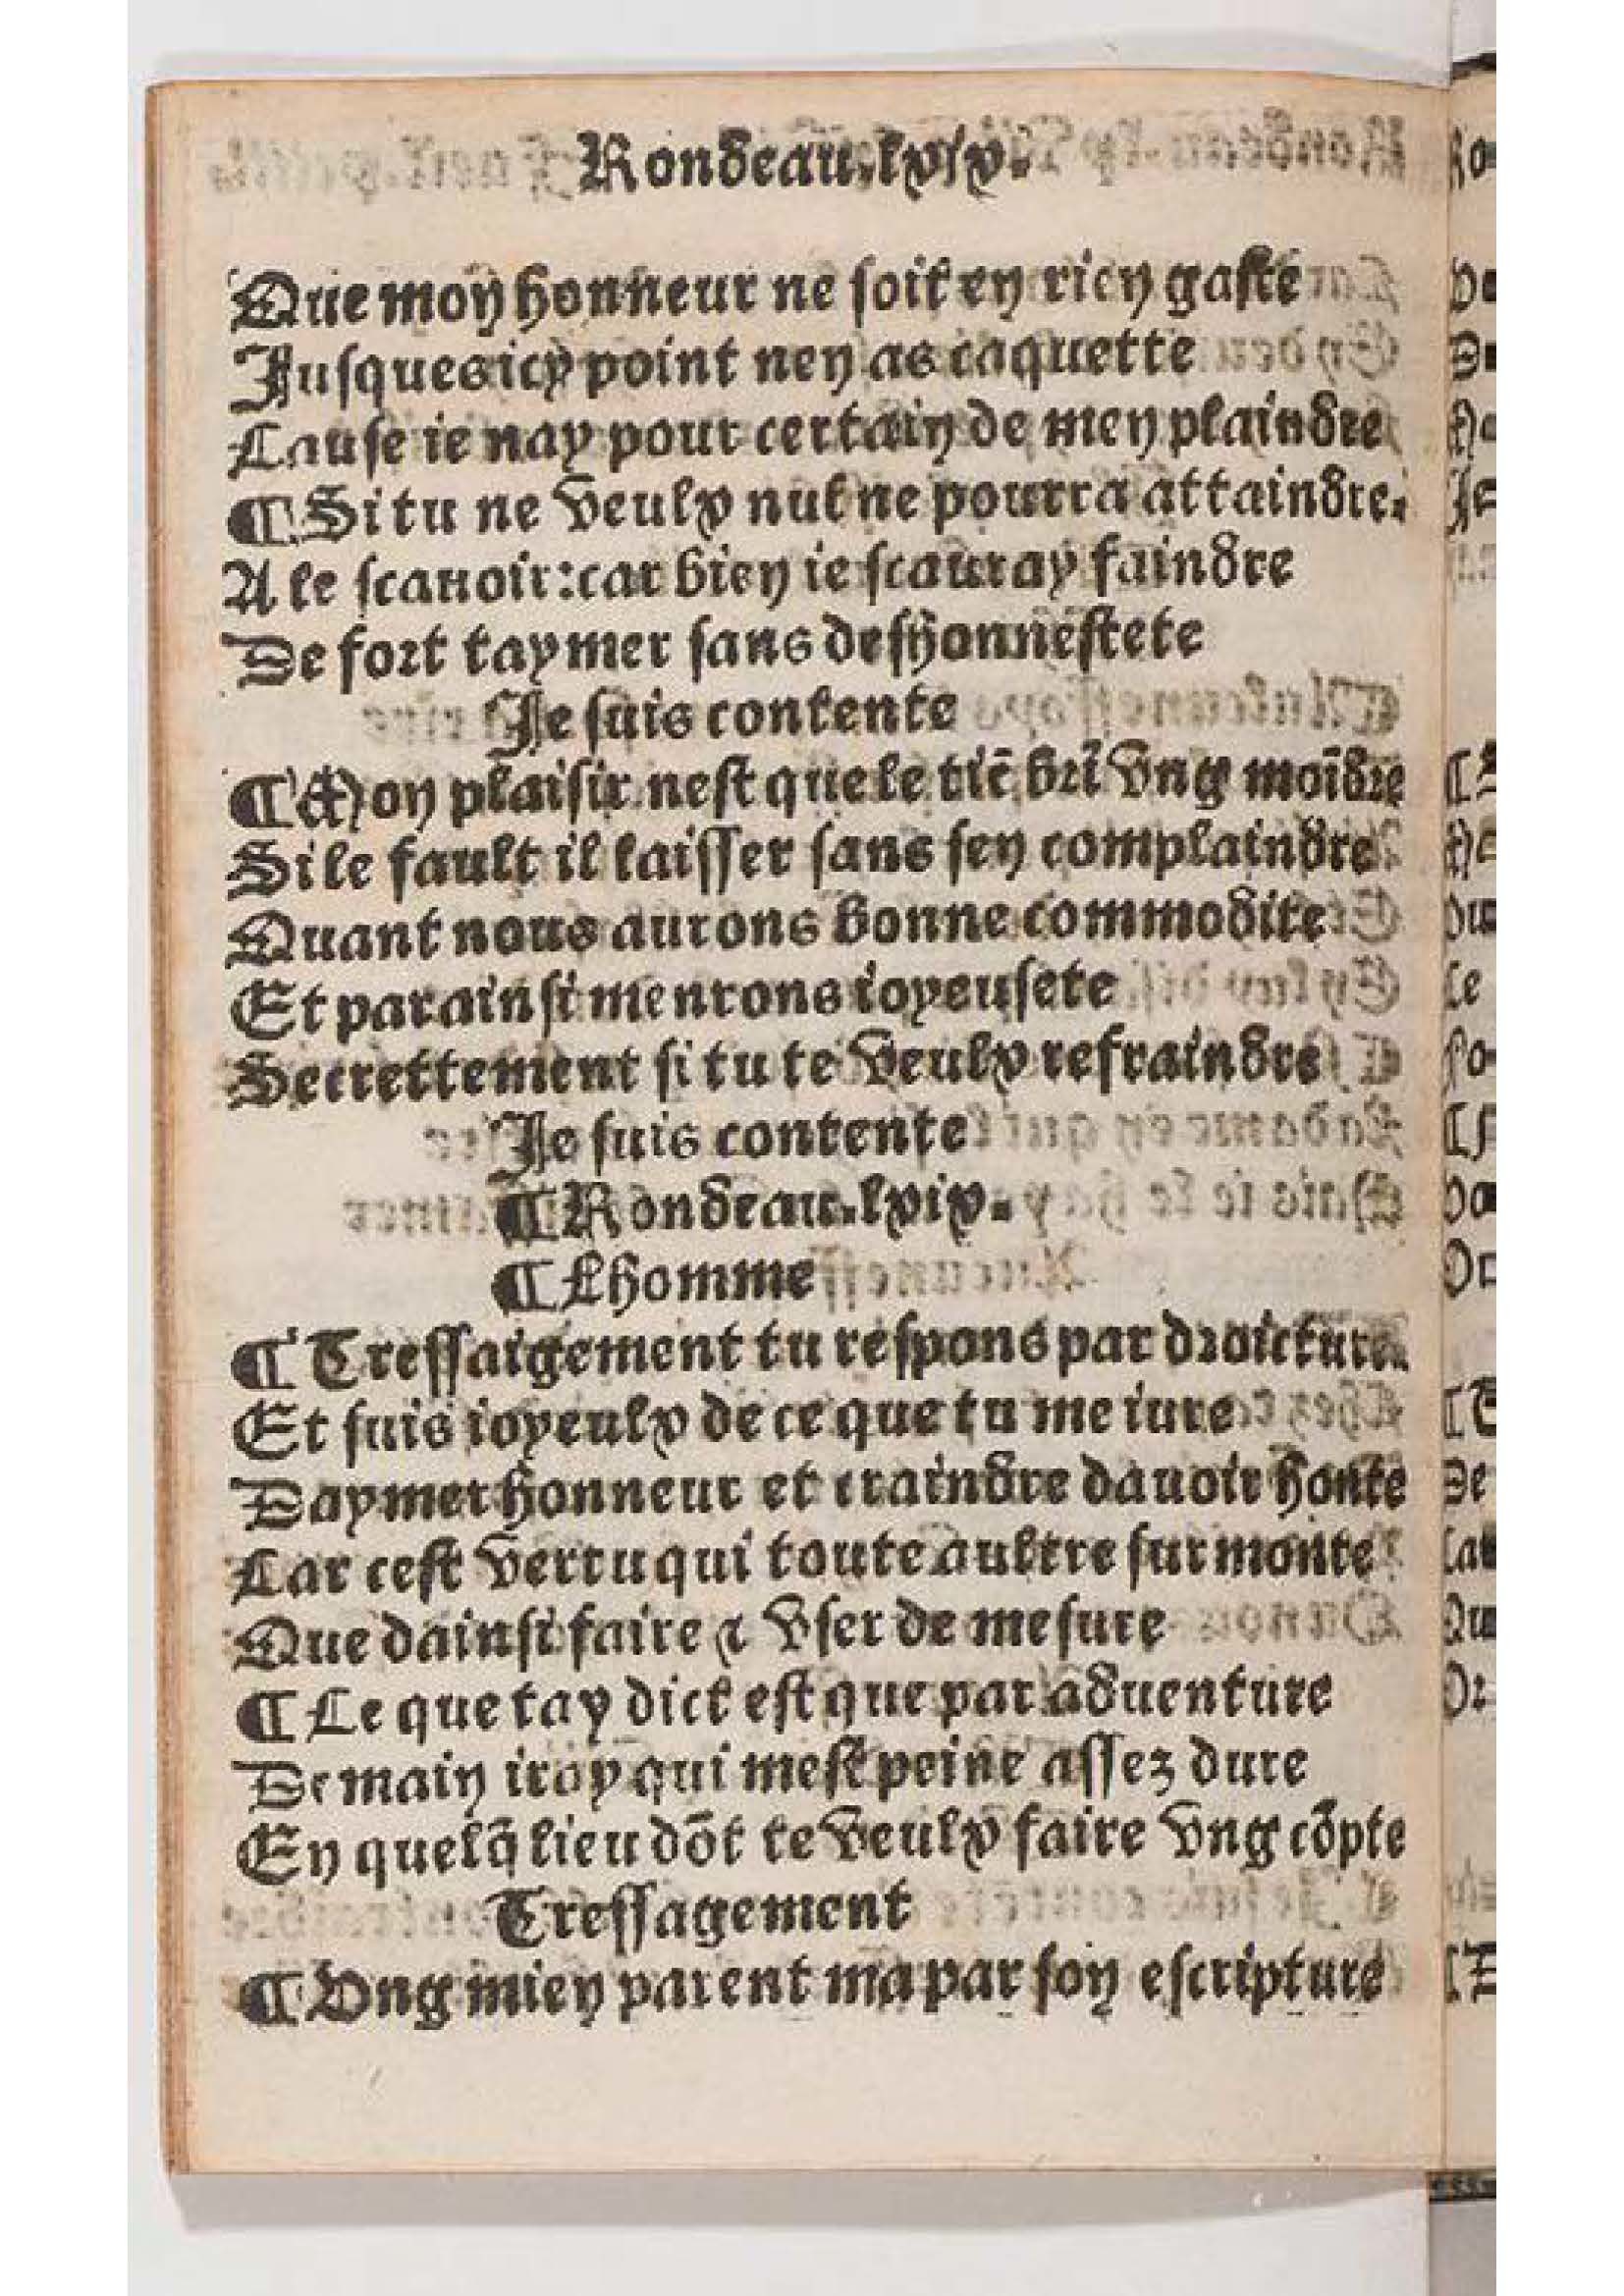 Rondeau.lxix.
Que mon honneur ne soit en rien gaste
Jusques icy point nen as caquette
Cause ie nay pour certain de men plaindre
¶ Si tu ne veulx nul ne pourra attaindre.
A le scauoir: car bien ie scauray faindre
De fort taymer sans deshonnestete
Je suis contente
¶ Mon plaisir nest que le tiē brī vng moīdre
Si le fault il laisser sans sen complaindre
Quant nous aurons bonne commodite
Et par ainsi menrons ioyeusete
Secrettement si tu te veulx refraindre
Je suis contente
¶ Rondeau.lxix.
¶ Lhomme
¶ Tressaigement tu respons par droicture
Et suis ioyeulx de ce que tu me iure
Daymer honneur et craindre dauoir honte
Car cest vertu qui toute aultre surmonte
Que dainsi faire & vser de mesure
¶ Ce que tay dict est que par aduenture
Demain iray qui mest peine assez dure
En quelq̄ lieu dōt te veulx faire vng cōpte
Tressagement
¶ Vng mien parent ma par son escripture